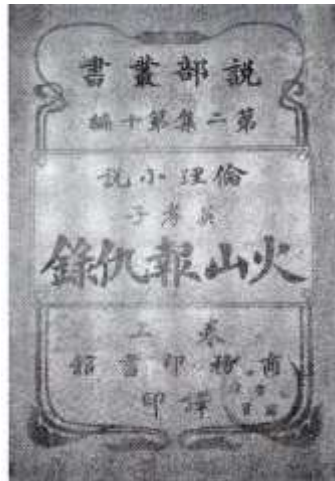 說部叢書
第二集第十編
倫理小說
英孝子
火山報仇錄
卷上
商務印書館
譯印